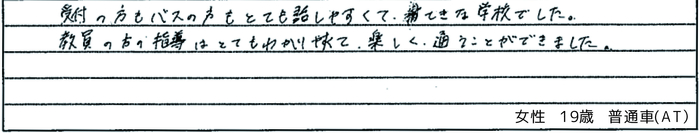 受付の方もバスの方もとても話しやすくて、すてきな学校でした。
教員の方の指導はとてもわかりやすくて、楽しく、通うことができました。
女性 19歳 普通車(AT)